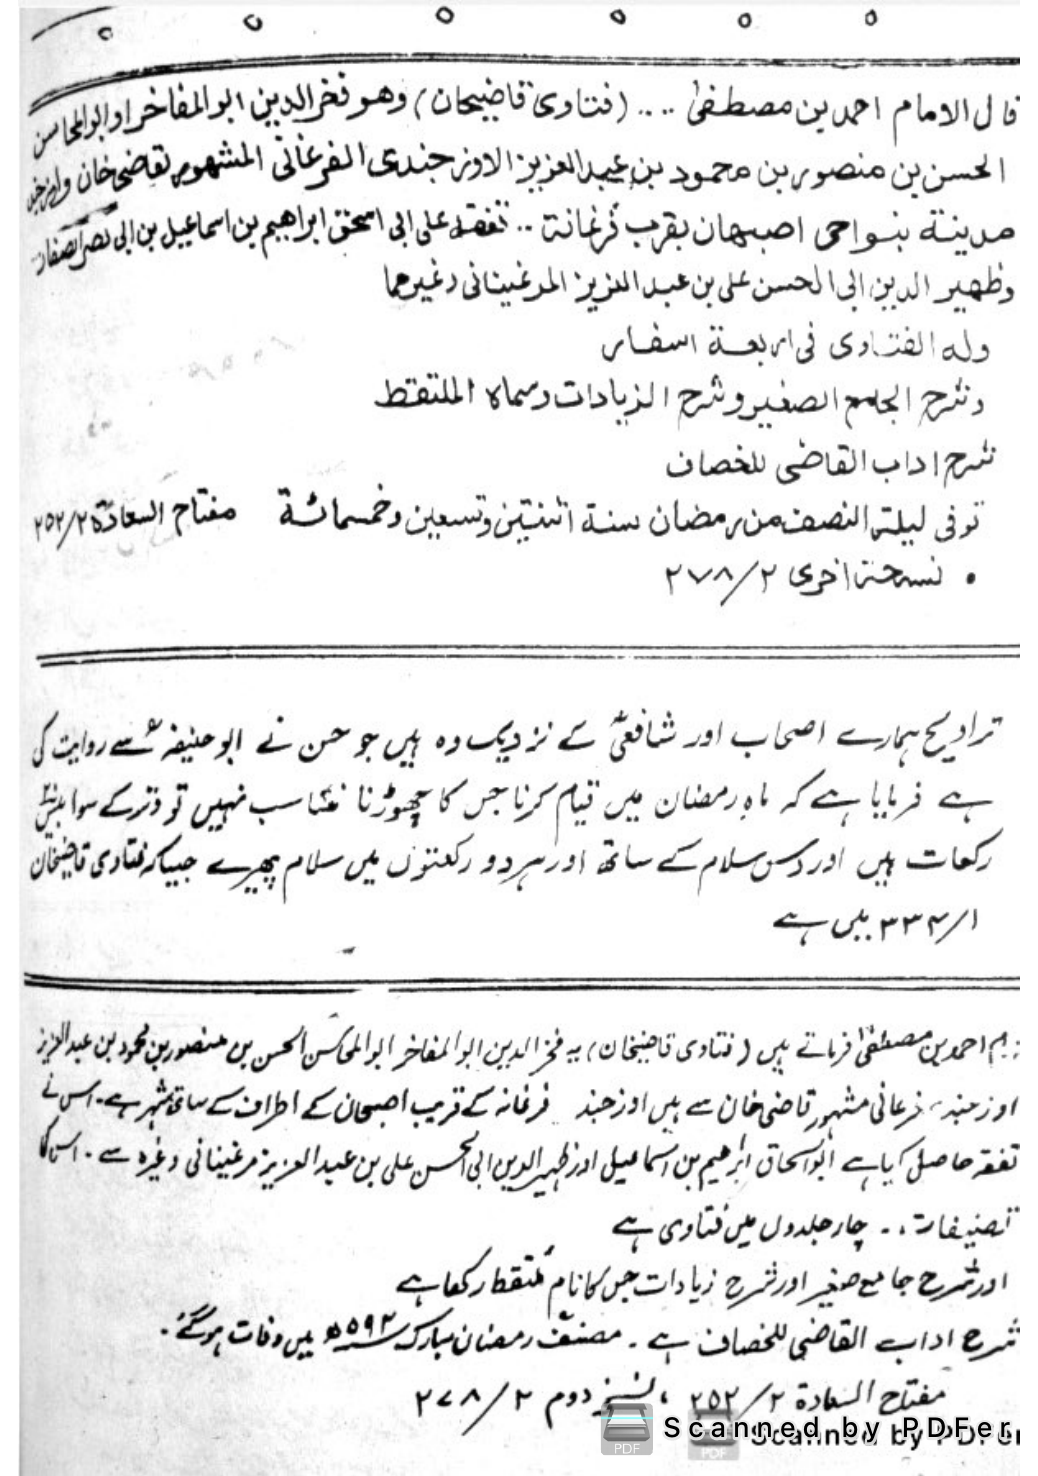 قال الامام احمد بن مصطفیٰ .... (فتاوی قاضیخان) وهو فخر الدین ابو المفاخر او ابو المحاسن
الحسن بن منصور بن محمود بن عبد العزیز الاوزجندی الفرغانی المشهور بقاضی خان
مدینة بنواحی اصبهان بقرب فرغانة .. تفقه علی ابی اسحٰق ابراهیم بن اسماعیل بن ابی نصر الصفار
وظهیر الدین ابی الحسن علی بن عبد العزیز المرغینانی وغیرهما
وله الفتاوی فی اربعة اسفار
وشرح الجامع الصغیر وشرح الزیادات وسماه الملتقط
شرح اداب القاضی للخصاف
توفی لیلة النصف من رمضان سنة اثنتین وتسعین وخمسمائة مفتاح السعادة ۲/۲۵۲
• نسخة اخری ۲/۲۷۸
تراویح ہمارے اصحاب اور شافعیؒ کے نزدیک وہ ہیں جو حسن نے ابو حنیفہؒ سے روایت کی
ہے فرمایا ہے کہ ماہ رمضان میں قیام کرنا جس کا چھوڑنا مناسب نہیں تو وتر کے سوا بیس
رکعات ہیں اور دس سلام کے ساتھ اور ہر دو رکعتوں میں سلام پھیرے جیسا کہ فتاوی قاضیخان
۱/۲۳۴ میں ہے
احمد بن مصطفیٰ فرماتے ہیں (فتاوی قاضیخان) یہ فخر الدین ابو المفاخر ابو المحاسن الحسن بن منصور بن محمود بن عبد العزیز
اوزجند، فرغانی مشہور قاضی خان سے ہیں اوزجند فرغانہ کے قریب اصبہان کے اطراف کے ساتھ شہر ہے۔ اس نے
تفقہ حاصل کیا ہے ابو اسحاق ابراهیم بن اسماعیل اور ظہیر الدین ابی الحسن علی بن عبد العزیز مرغینانی وغیرہ سے۔ اس کا
تصنیفات .. چار جلدوں میں فتاوی ہے
اور شرح جامع صغیر اور شرح زیادات جس کا نام مُلتقط رکھا ہے
شرح اداب القاضی للخصاف ہے۔ مصنف رمضان مبارک ۵۹۲ھ میں وفات ہو گئے۔
مفتاح السعادة ۲/۲۵۲ ، نسخہ دوم ۲/۲۷۸
Scanned by PDFer
Scanned by PDFer